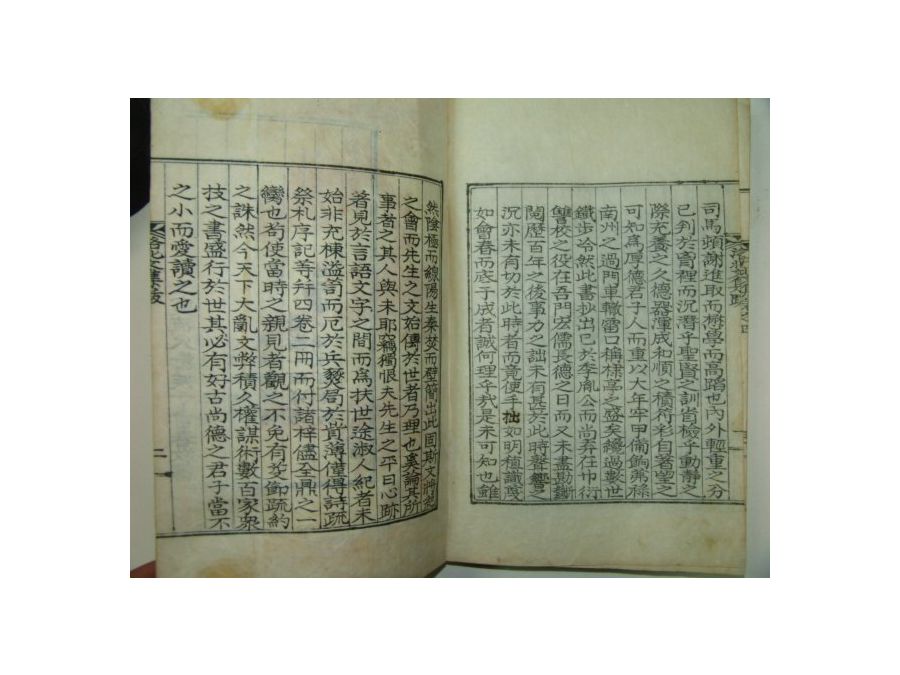 司馬頭謝進取而耨學而高蹈也內外輕重之分
已判於窅裡而沉潛乎聖賢之訓省檢乎動靜之
際充養之久德器渾成和順之積符彩自著望之
可知為厚德君子人而重以大年牢甲備餉弟孫
南州之過門車轍雷口稱棣亭之盛矣纔過數世
鐵步冷然此書抄出已於李胤公而尚弃在巾衍
讐校之役在吾門宏儒長德之日而又未盡勘斷
閱歷百年之後事力之詘未有甚於此時聲響之
沉亦未有切於此時者而竟使手拙如明植識蔑
如會春而底于成者誠何理乎我是未可知也雖
然陰極而線陽生秦焚而壁簡出此固斯文將起
之會而先生之文始傳於世者乃理也奚論其所
事者之其人與未耶竊獨恨夫先生之平日心跡
著見於言語文字之間而為扶世途淑人紀者未
始非充棟溢笥而厄於兵燹局於貲薄僅得詩疏
祭札序記等拜四卷二冊而付諸梓儘全鼎之一
臠也苟使當時之親見者觀之不免有芟節疏約
之誅然今天下大亂文弊積久權謀術數百家衆
技之書盛行於世其必有好古尚德之君子當不
之小而愛讀之也
二